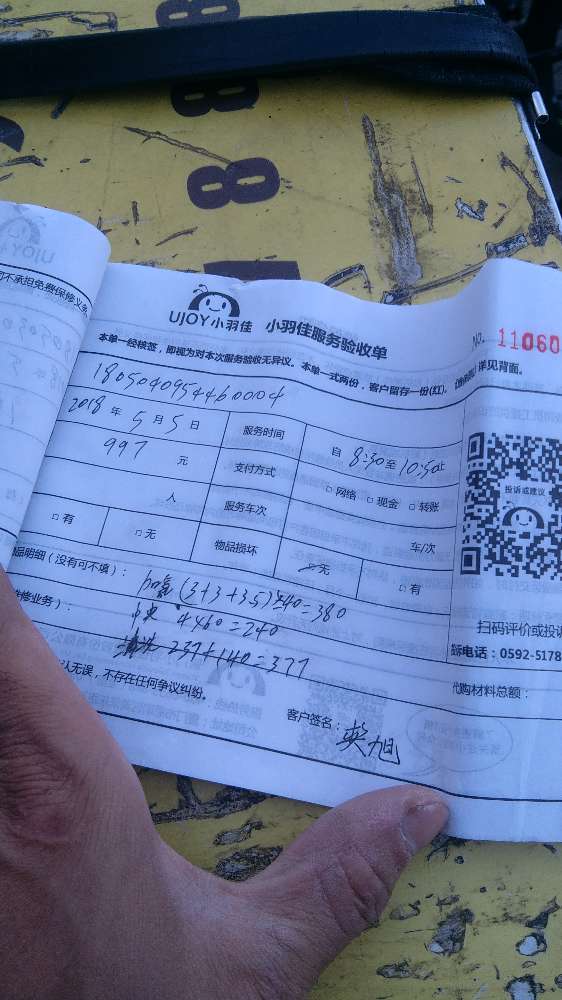 8
8
UJOY小羽佳 小羽佳服务验收单
NO. 11060
本单一经核签，即视为对本次服务验收无异议。本单一式两份，客户留存一份(红)。
详见背面。
司不承担免费保修义务
1805040954460004
2018 年 5 月 5 日 服务时间 自 8:30 至 10:50止
997 元 支付方式 □网络 □现金 □转账
人 服务车次 车/次
□有 □无 物品损坏 无 □有
投诉或建议
品明细（没有可不填）：
加氟 (3+3+3.5)×40=380
修业务）：
4×60=240
清洗 237+140=377
扫码评价或投诉
电话：0592-5178
代购材料总额：
认无误，不存在任何争议纠纷。
客户签名：